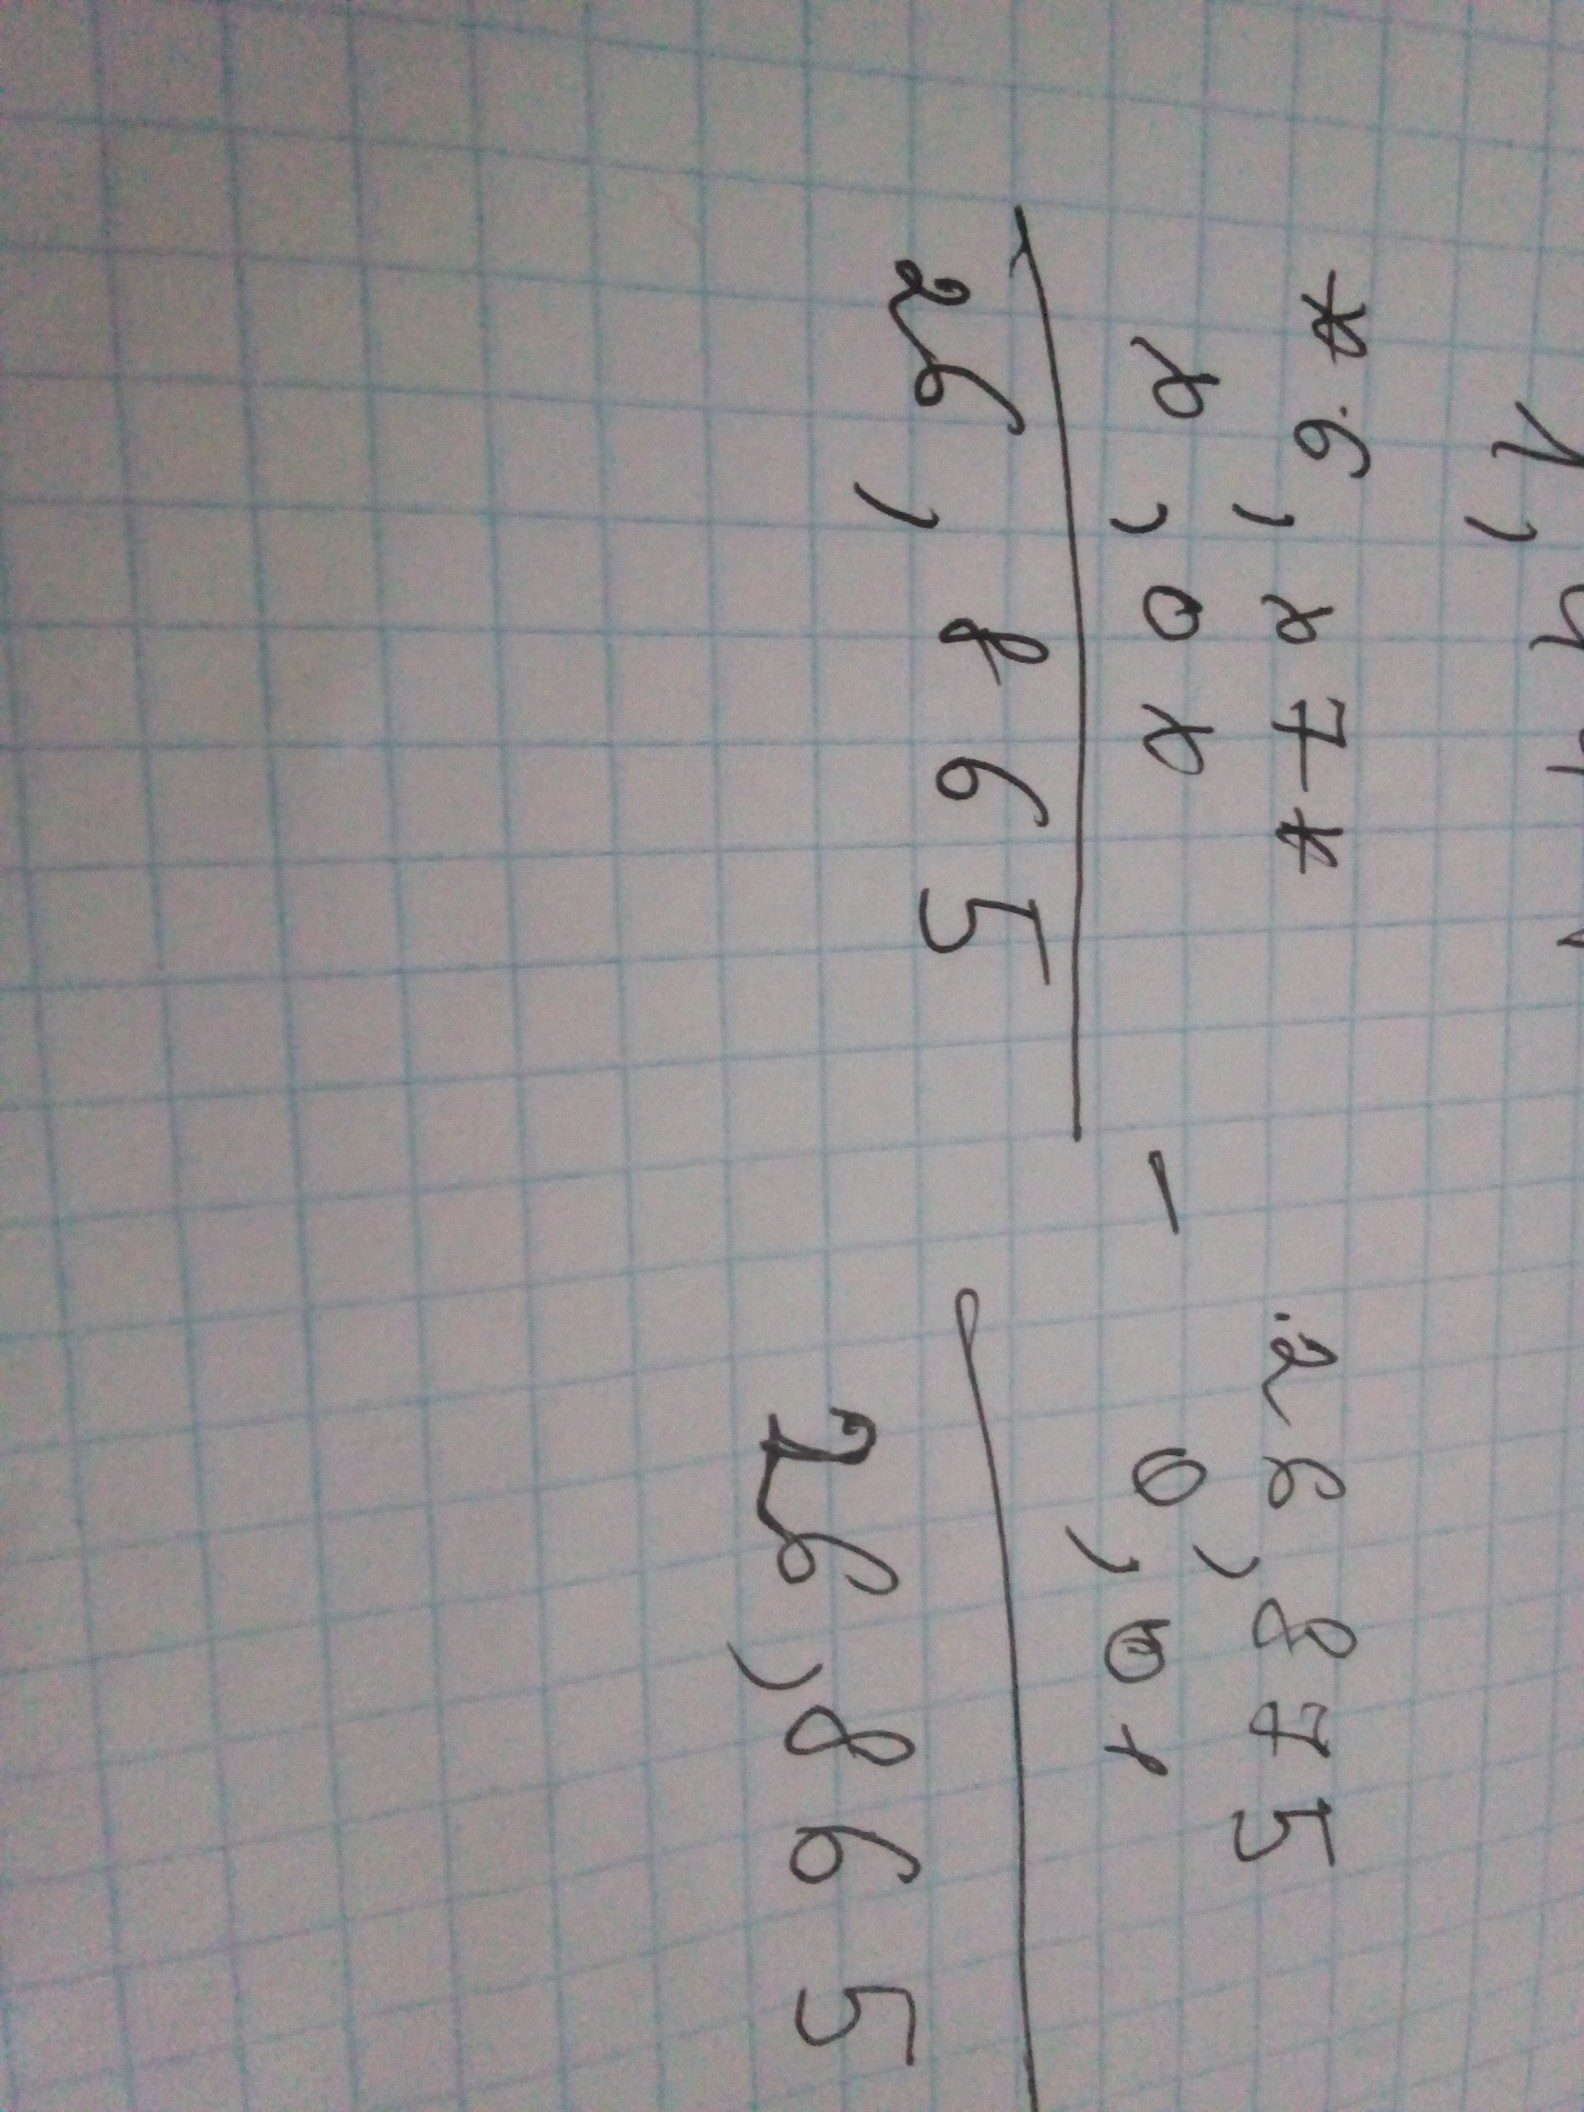 1,4
*6,*7*
*,0*
26,865
26,875
-
0,01
26,865